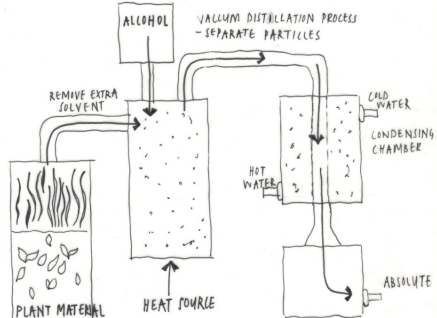 ALCOHOL
VACCUM DISTILLATION PROCESS
- SEPARATE PARTICLES
REMOVE EXTRA
SOLVENT
COLD
WATER
CONDENSING
CHAMBER
HOT
WATER
ABSOLUTE
PLANT MATERIAL
HEAT SOURCE